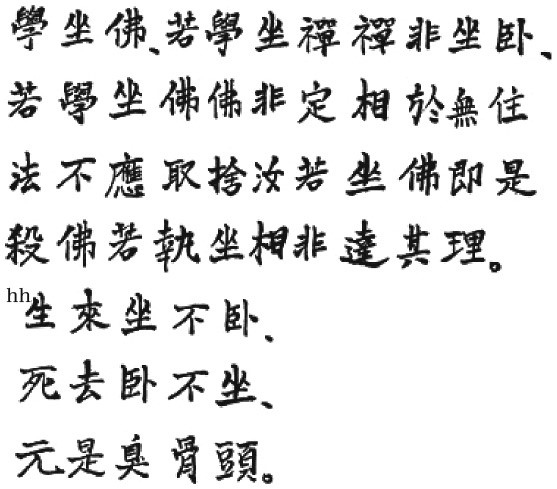 學坐佛、若學坐禪禪非坐卧、
若學坐佛佛非定相於無住
法不應取捨汝若坐佛即是
殺佛若執坐相非達其理。
hh生來坐不卧、
死去卧不坐、
元是臭骨頭。